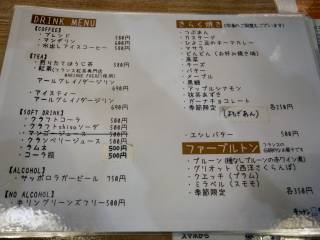 DRINK MENU
【COFFEE】
・ブレンド 500円
・マンデリン 600円
・水出しアイスコーヒー 500円
【TEA】
・煎りたてほうじ茶 500円
・紅茶(フランス紅茶専門店
アールグレイ/ダージリン
690円
・アイスティー
アールグレイ/ダージリン
690円
【SOFT DRINK】
・クラフトコーラ 500円
・クラフトshisoソーダ 500円
・マンゴージュース 500円
・クランベリージュース 500円
・ラムネ 500円
・コーラ瓶 500円
【ALCOHOL】
・サッポロラガービール 750円
【NO ALCOHOL】
・キリングリーンズフリー 500円
きらく焼き
・つぶあん
・カスタード
・ひよこ豆のキーマカレー
・マヨたま
・黒豆
・チーズ
・バター
・メープル
・黒糖
・アップルシナモン
・抹茶あずき
・ガーナチョコレート
・季節限定 各250円
・エシレバター 500円
ファーブルトン
フランスの
伝統的なお菓子です
・プルーン(種なしプルーンの赤ワイン煮)
・グリオット(西洋さくらんぼ)
・クエッチ(プラム)
・ミラベル(スモモ)
・季節限定 各350円
スマホから